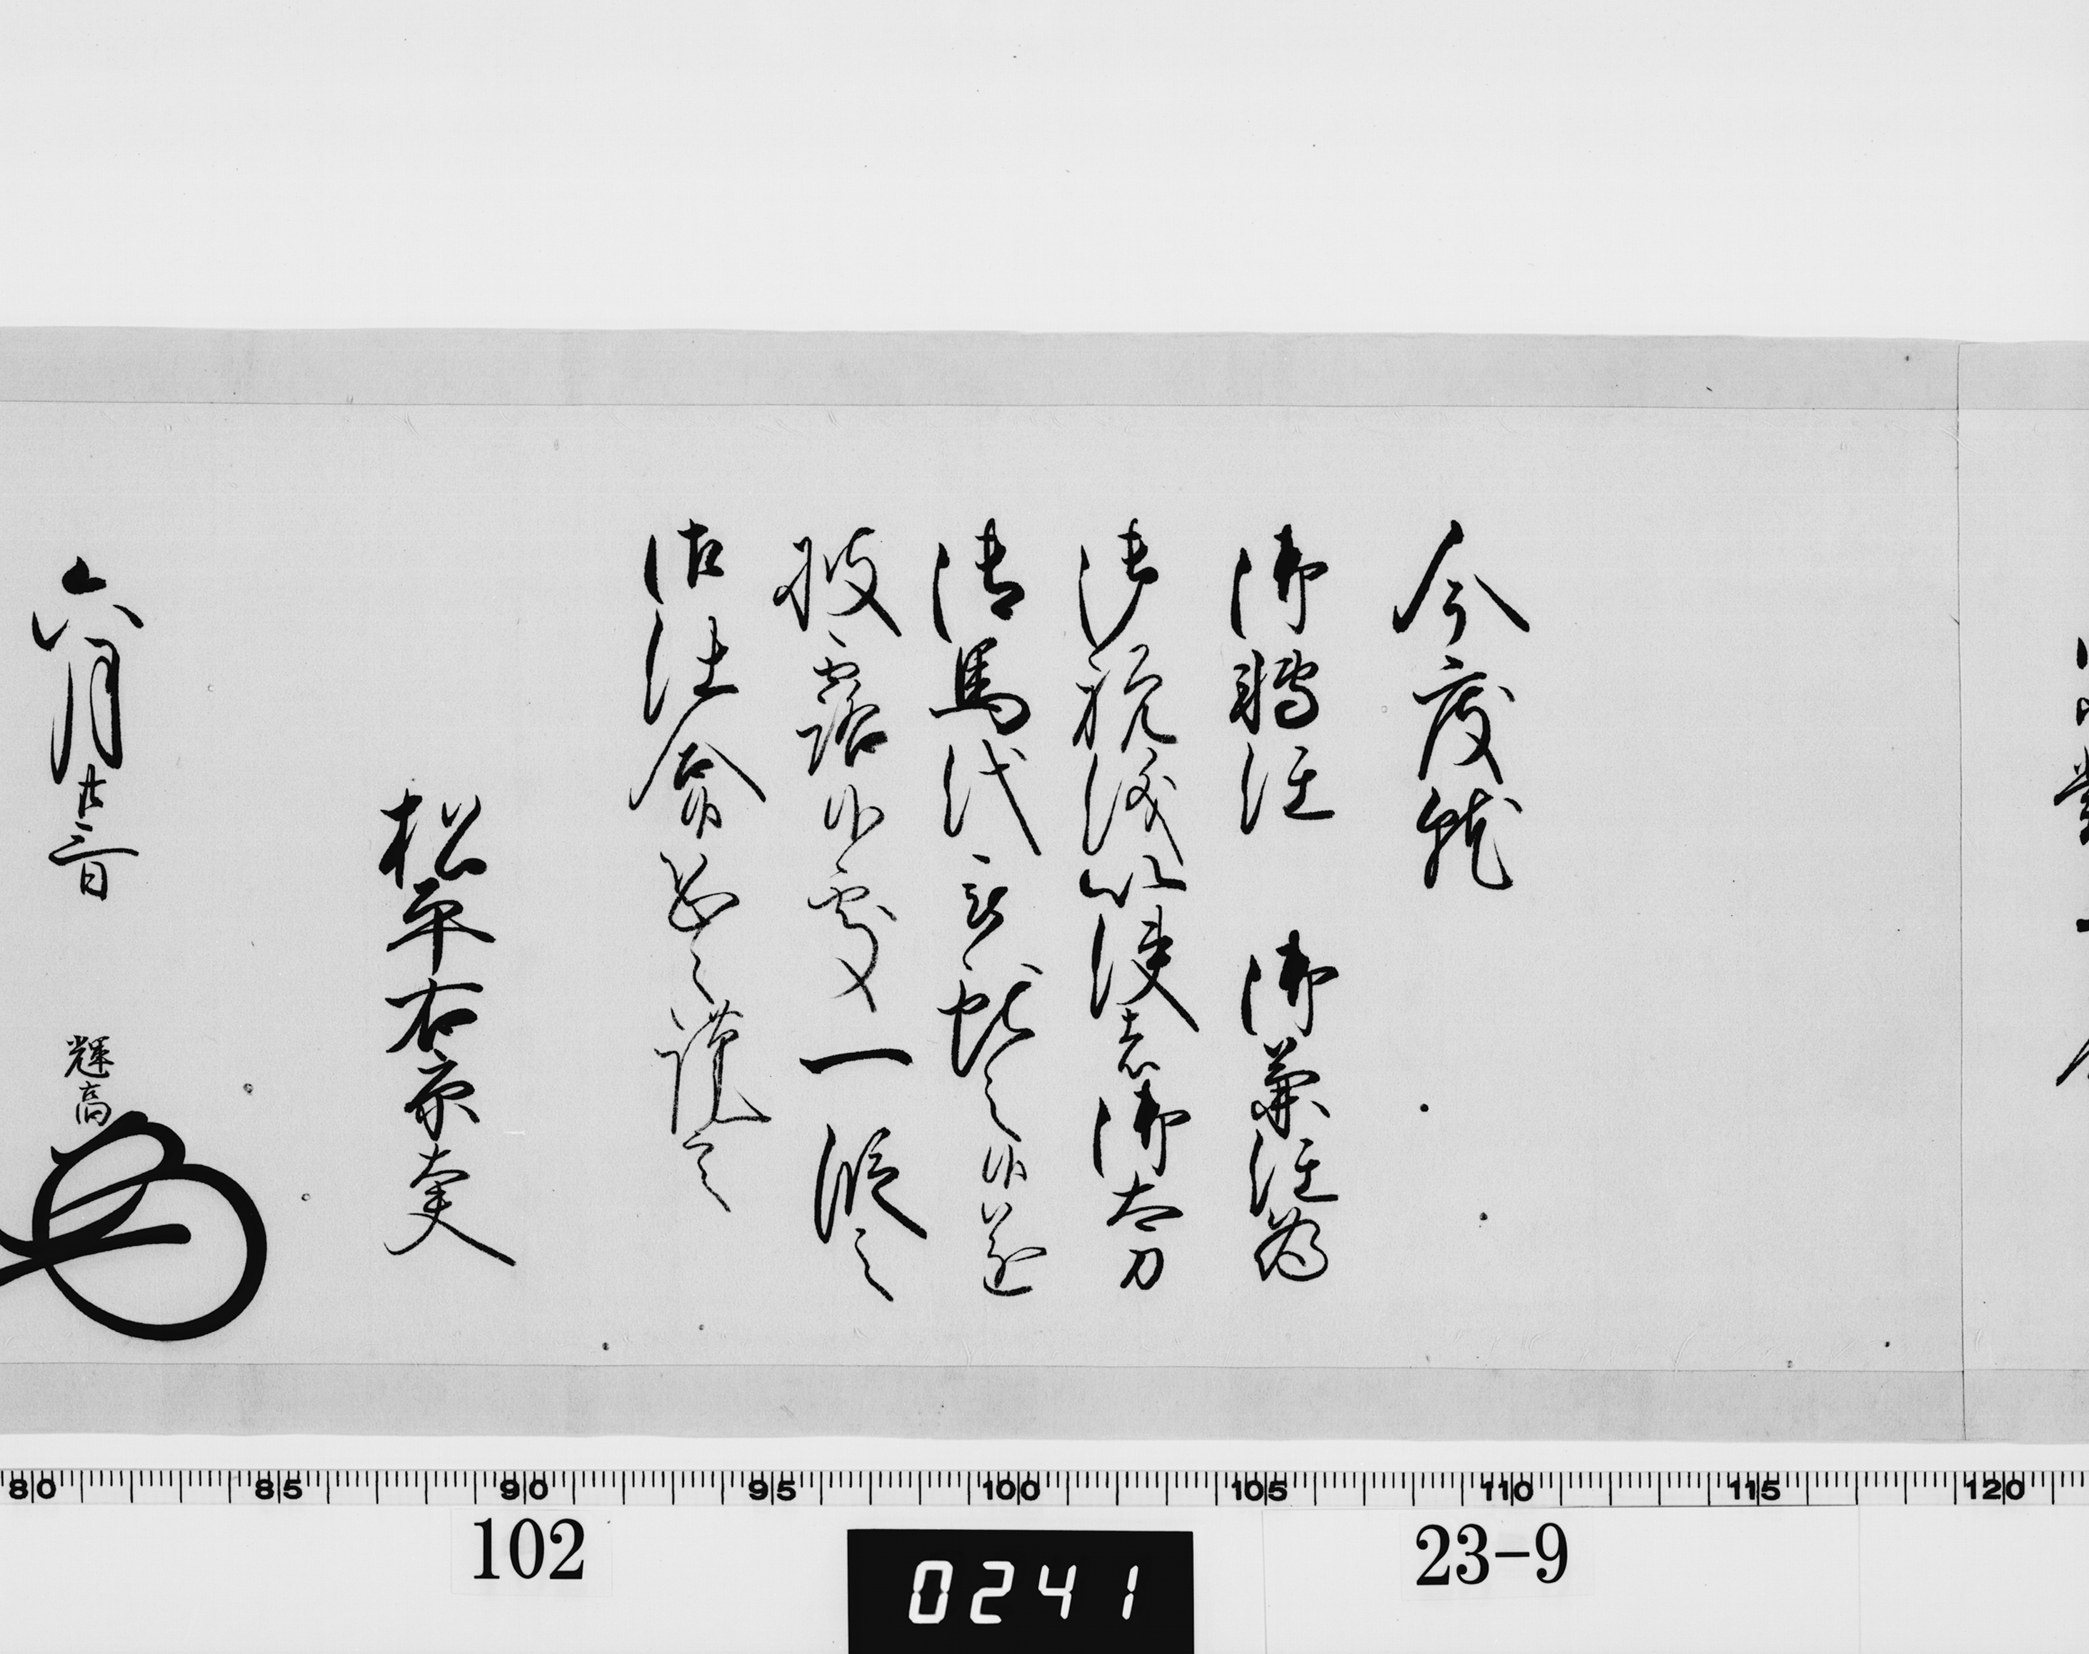 今度就
御轉任 御兼任為
御祝儀以使者御太刀
御馬代被献之候遂
披露候處一段之
御仕合候恐々謹言
松平右京大夫
六月廿三日
輝高
80 85 90 95 100 105 110 115 120
102
0241
23-9